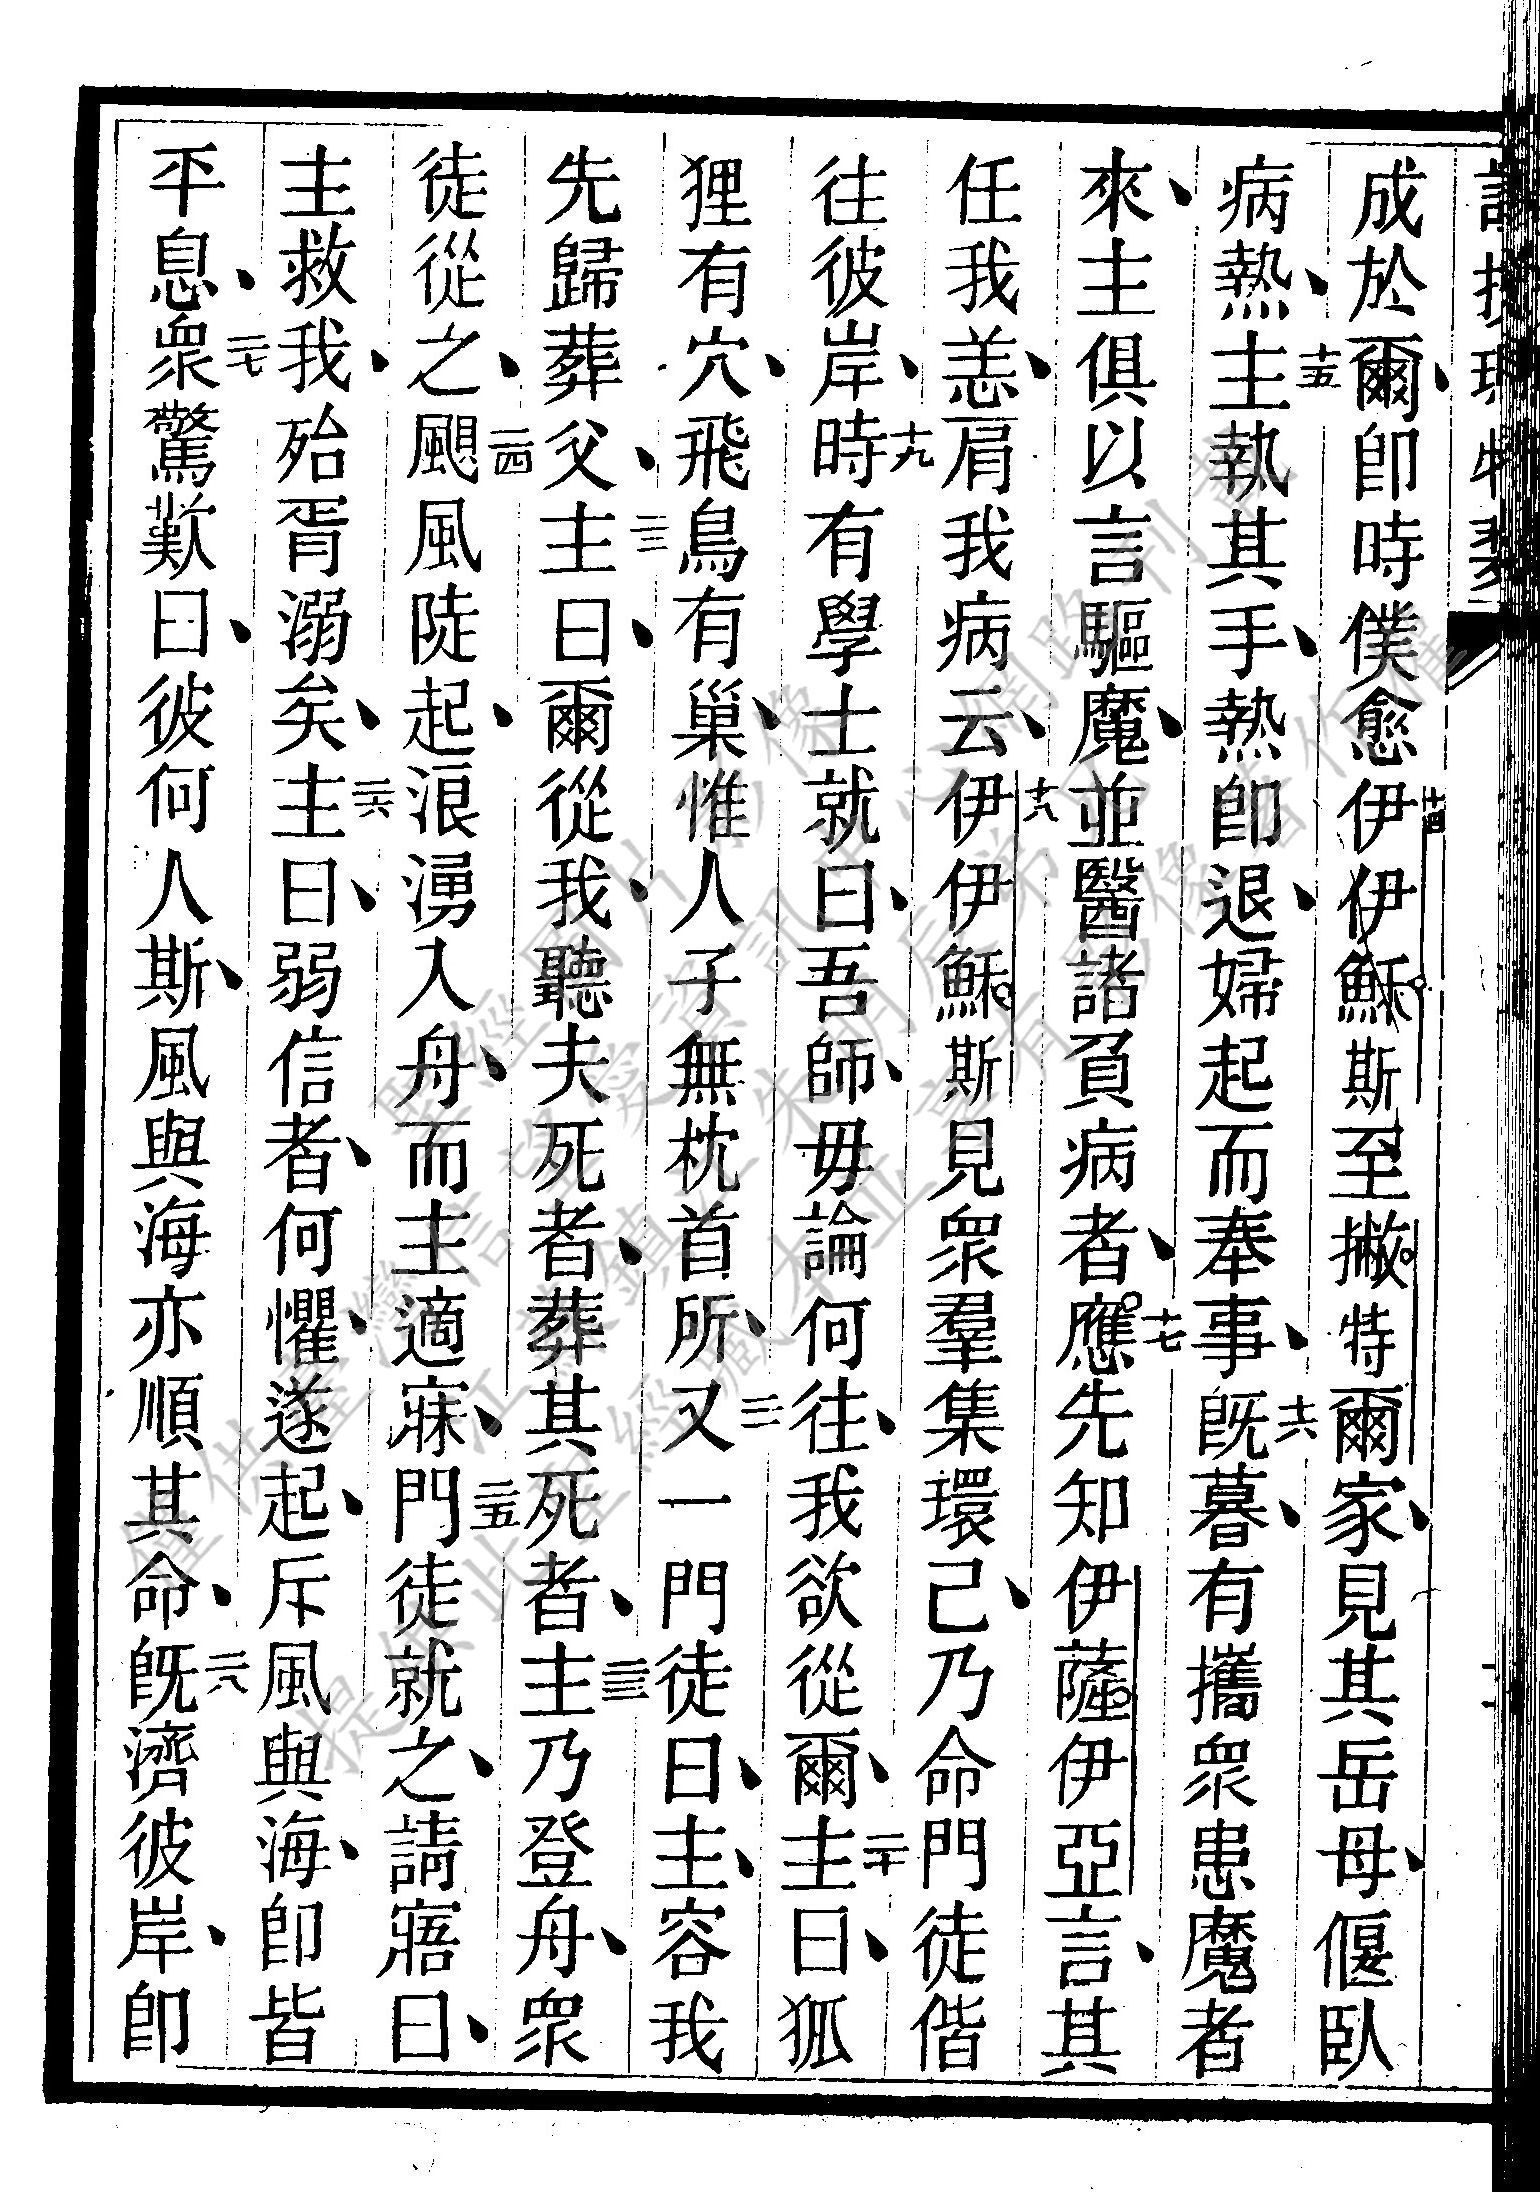 成於爾、即時僕愈十四伊伊穌斯至撇特爾家、見其岳母、偃臥
病熱、十五主執其手、熱即退、婦起而奉事、十六既暮、有攜衆患魔者
來、主俱以言驅魔、並醫諸負病者、十七應先知伊薩伊亞言、其
任我恙、肩我病云、十八伊伊穌斯見衆羣集環己、乃命門徒偕
往彼岸、十九時有學士就曰、吾師、毋論何往、我欲從爾、二十主曰、狐
狸有穴、飛鳥有巢、惟人子無枕首所、二一又一門徒曰、主、容我
先歸葬父、二二主曰、爾從我、聽夫死者、葬其死者、二三主乃登舟、衆
徒從之、二四颶風陡起、浪湧入舟、而主適寐、二五門徒就之、請寤曰、
主救我、殆胥溺矣、二六主曰、弱信者、何懼、遂起、斥風與海、即皆
平息、二七衆驚歎曰、彼何人斯、風與海亦順其命、二八既濟彼岸、即